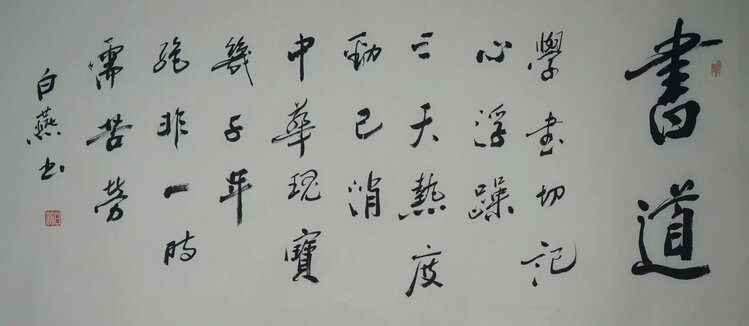 書道
學書切記
心浮躁
三天熱度
勁已消
中華瑰寶
幾千年
絕非一時
苦勞
白燕书